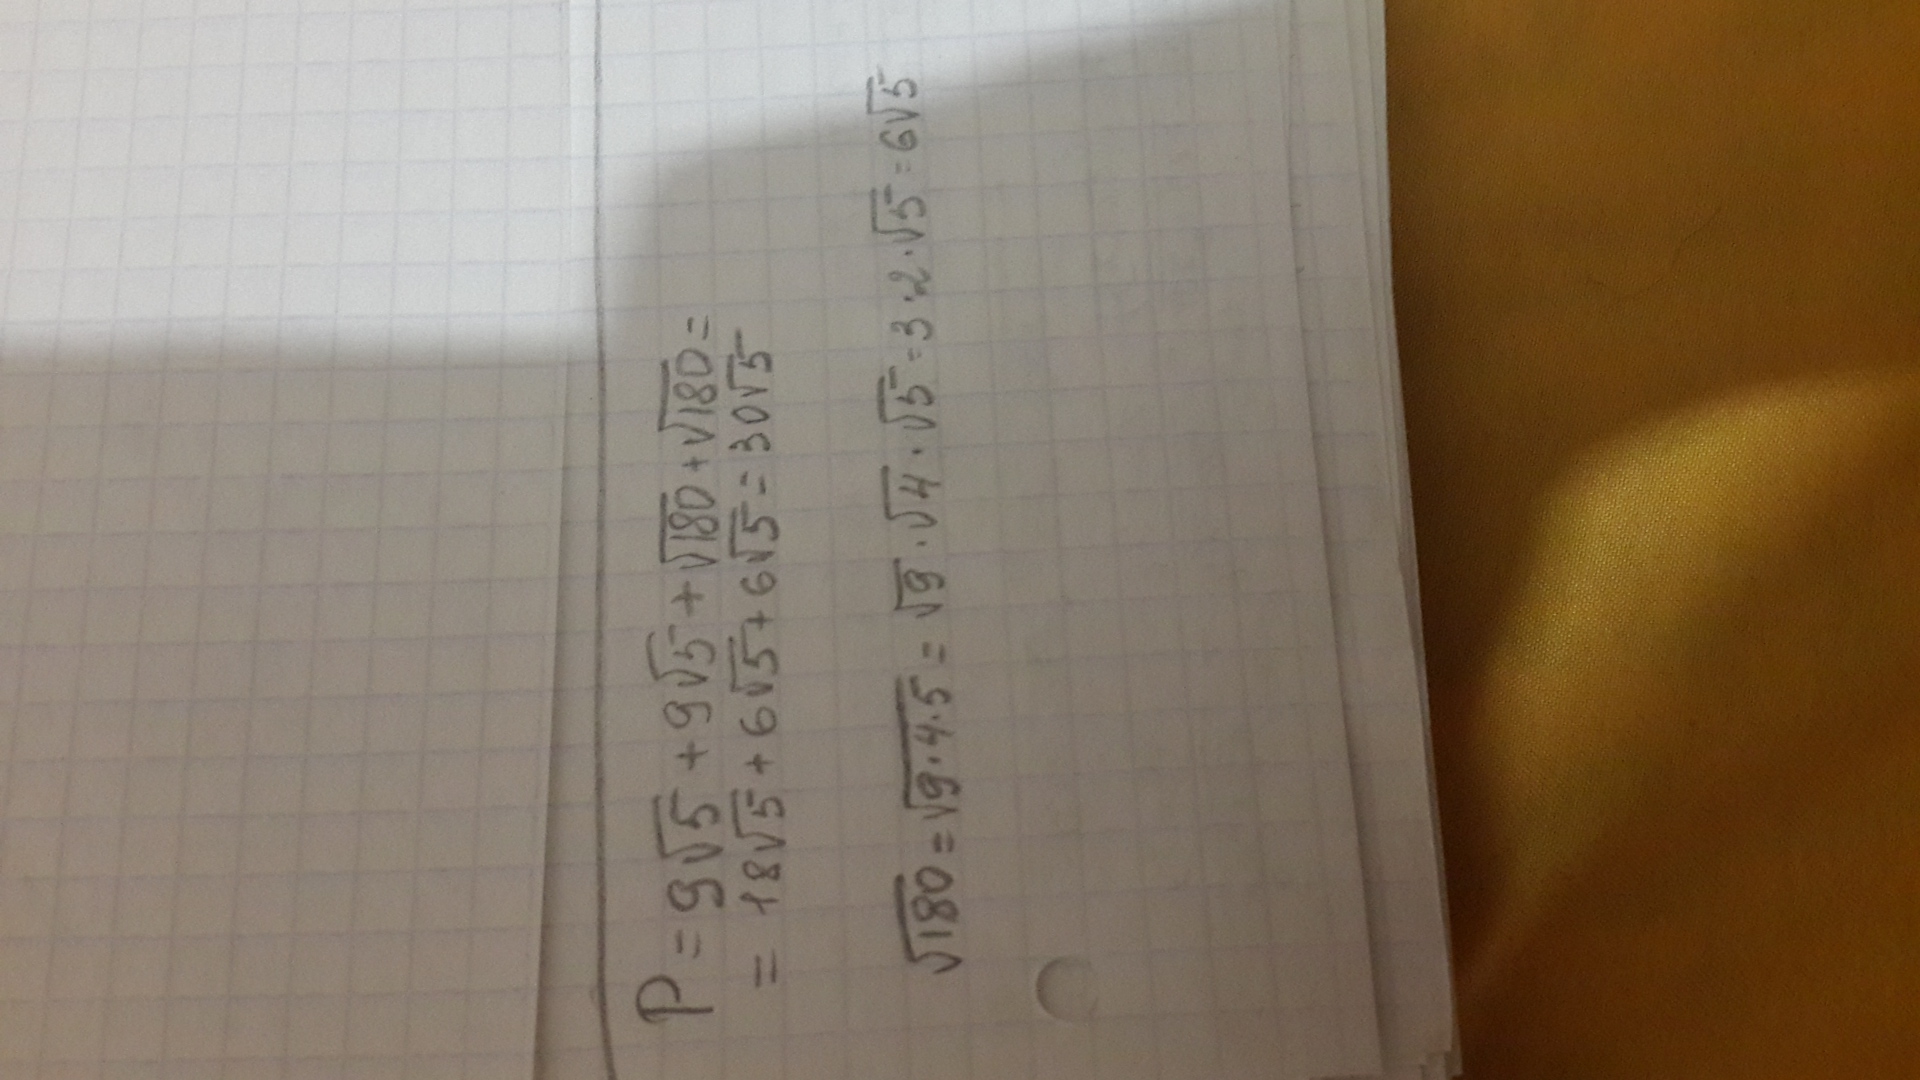 P = 9√5 + 9√5 + √180 + √180 =
= 18√5 + 6√5 + 6√5 = 30√5
√180 = √9·4·5 = √9 · √4 · √5 = 3·2·√5 = 6√5